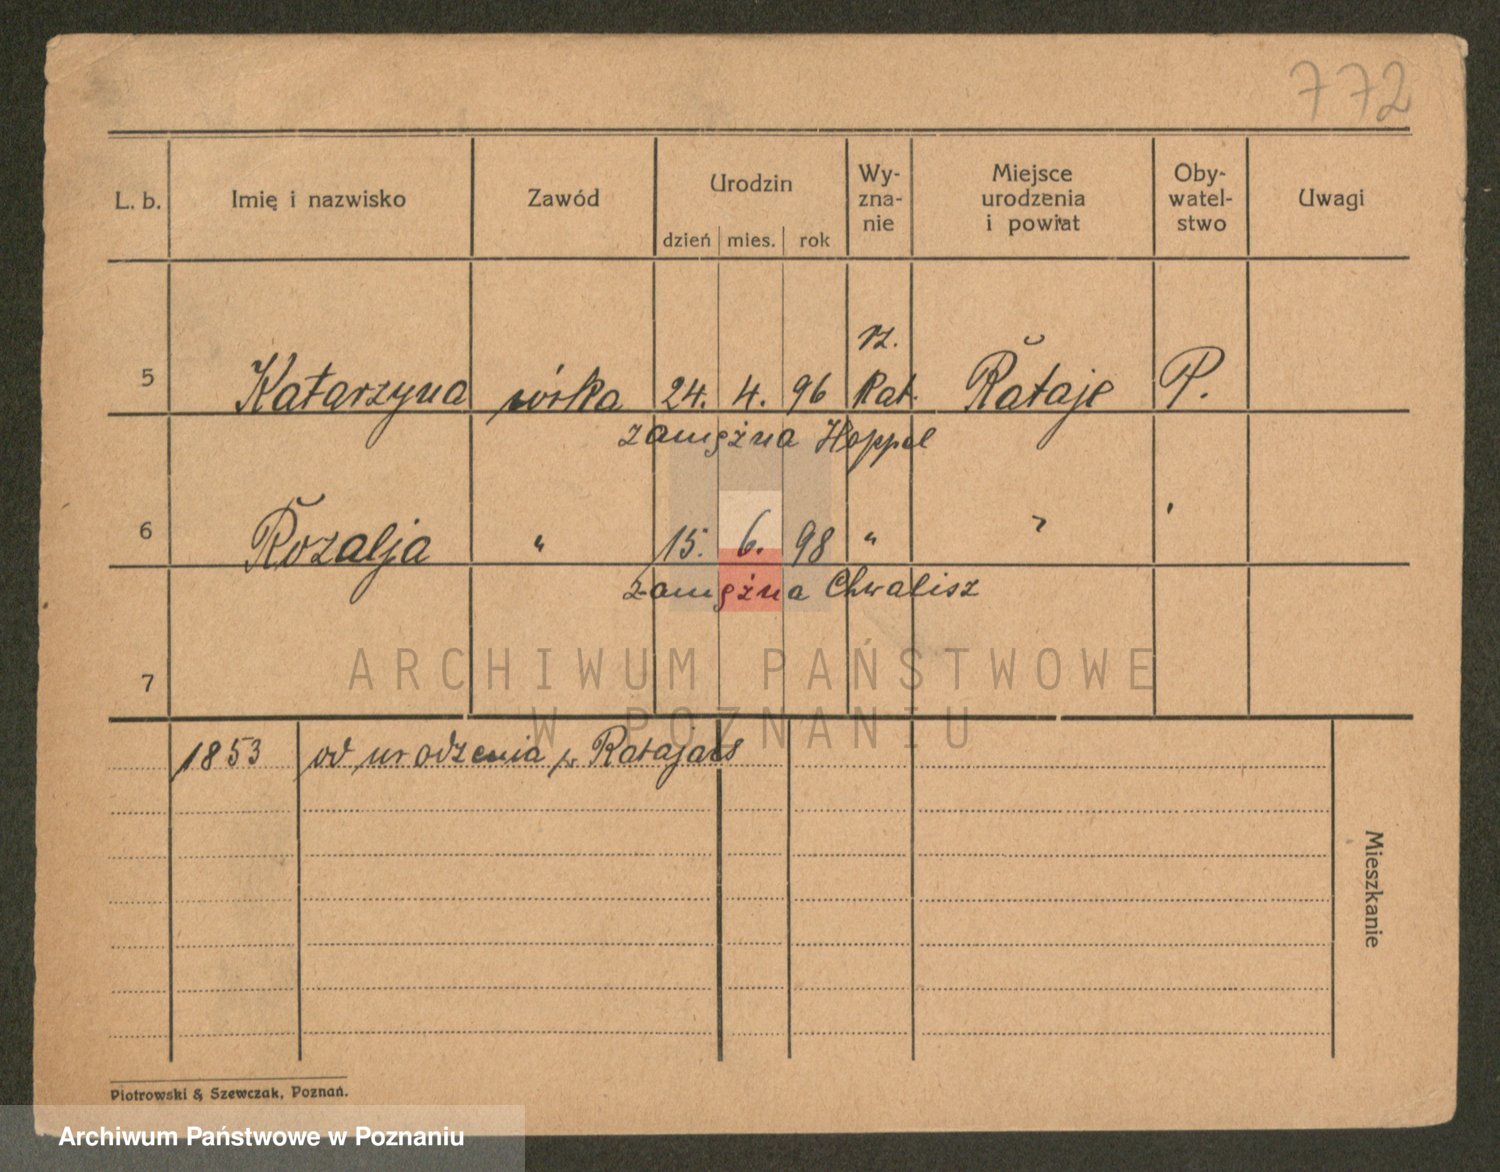 772
L. b. Imię i nazwisko Zawód Urodzin dzień mies. rok Wy- zna- nie Miejsce urodzenia i powiat Oby- watel- stwo Uwagi
rz.
5 Katarzyna córka 24. 4. 96 Kat. Rataje P.
zamężna Hoppel
6 Rozalja " 15. 6. 98 " " '
zamężna Chwalisz
7
ARCHIWUM PAŃSTWOWE
W POZNANIU
1853 od urodzenia w Ratajach
Mieszkanie
Piotrowski & Szewczak, Poznań.
Archiwum Państwowe w Poznaniu